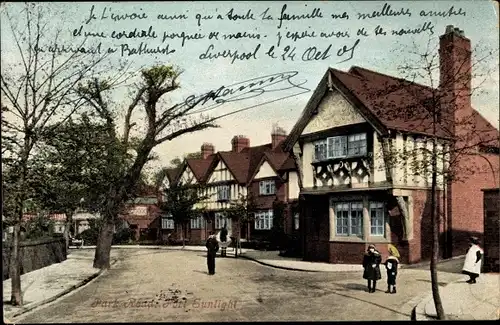 Je t'envoie ainsi qu'à toute la famille mes meilleurs amitiés
et une cordiale poignée de main - j'espère avoir de tes nouvelles
en arrivant à Bathurst
Liverpool le 24 Oct 05
Park Road, Port Sunlight